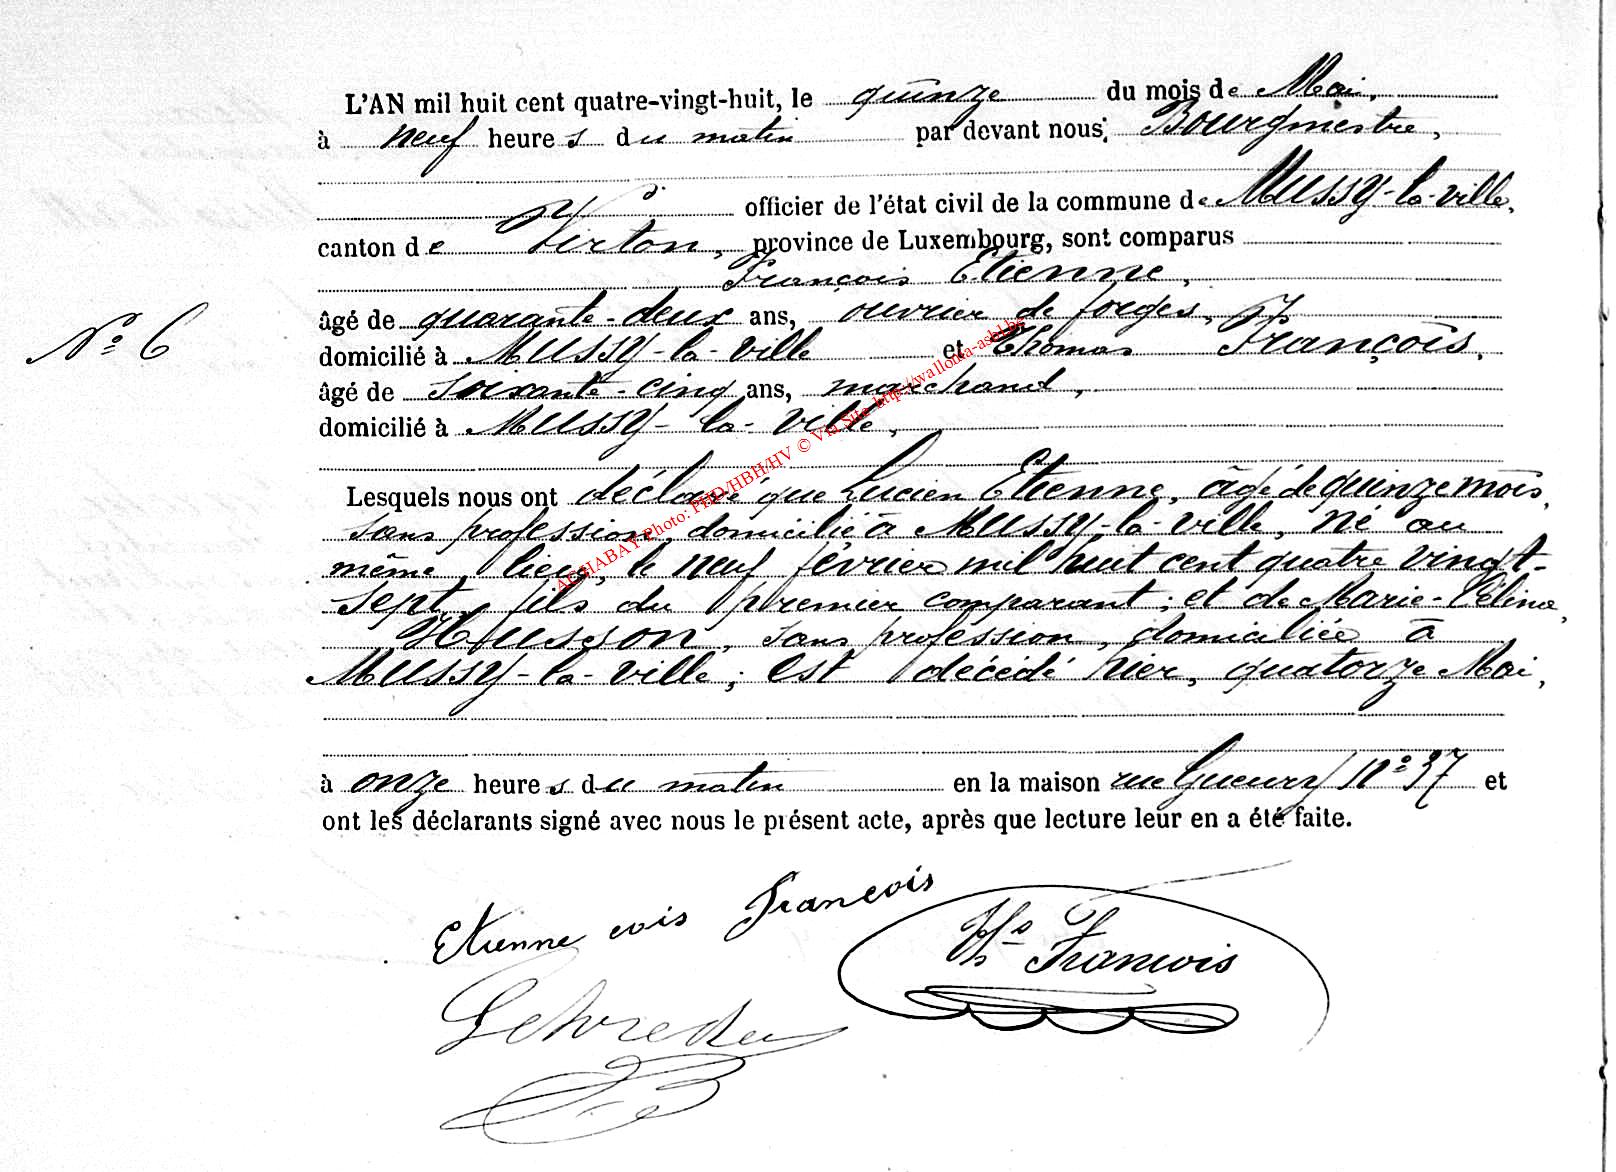 L'AN mil huit cent quatre-vingt-huit, le quinze du mois de Mai,
à neuf heures du matin par devant nous; Bourgmestre,
officier de l'état civil de la commune de Mussy-la-ville,
canton de Virton, province de Luxembourg, sont comparus
François Etienne,
âgé de quarante-deux ans, ouvrier de forges,
N° 6
domicilié à Mussy-la-ville et Thomas François,
âgé de soixante-cinq ans, marchand,
domicilié à Mussy-la-ville,
Lesquels nous ont déclaré que Lucien Etienne, âgé de quinze mois,
sans profession, domicilié à Mussy-la-ville, né au
même lieu, le neuf février mil huit cent quatre vingt-
sept, fils du premier comparant; et de Marie-Céline
Husson, sans profession, domiciliée à
Mussy-la-ville; est décédé hier, quatorze Mai,
à onze heures du matin en la maison rue N° 37 et
ont les déclarants signé avec nous le présent acte, après que lecture leur en a été faite.
Etienne cois François
Ths François
AGHABAY Photo: PHD/HBH/HV © Via Site http://wallonia-asbl.be